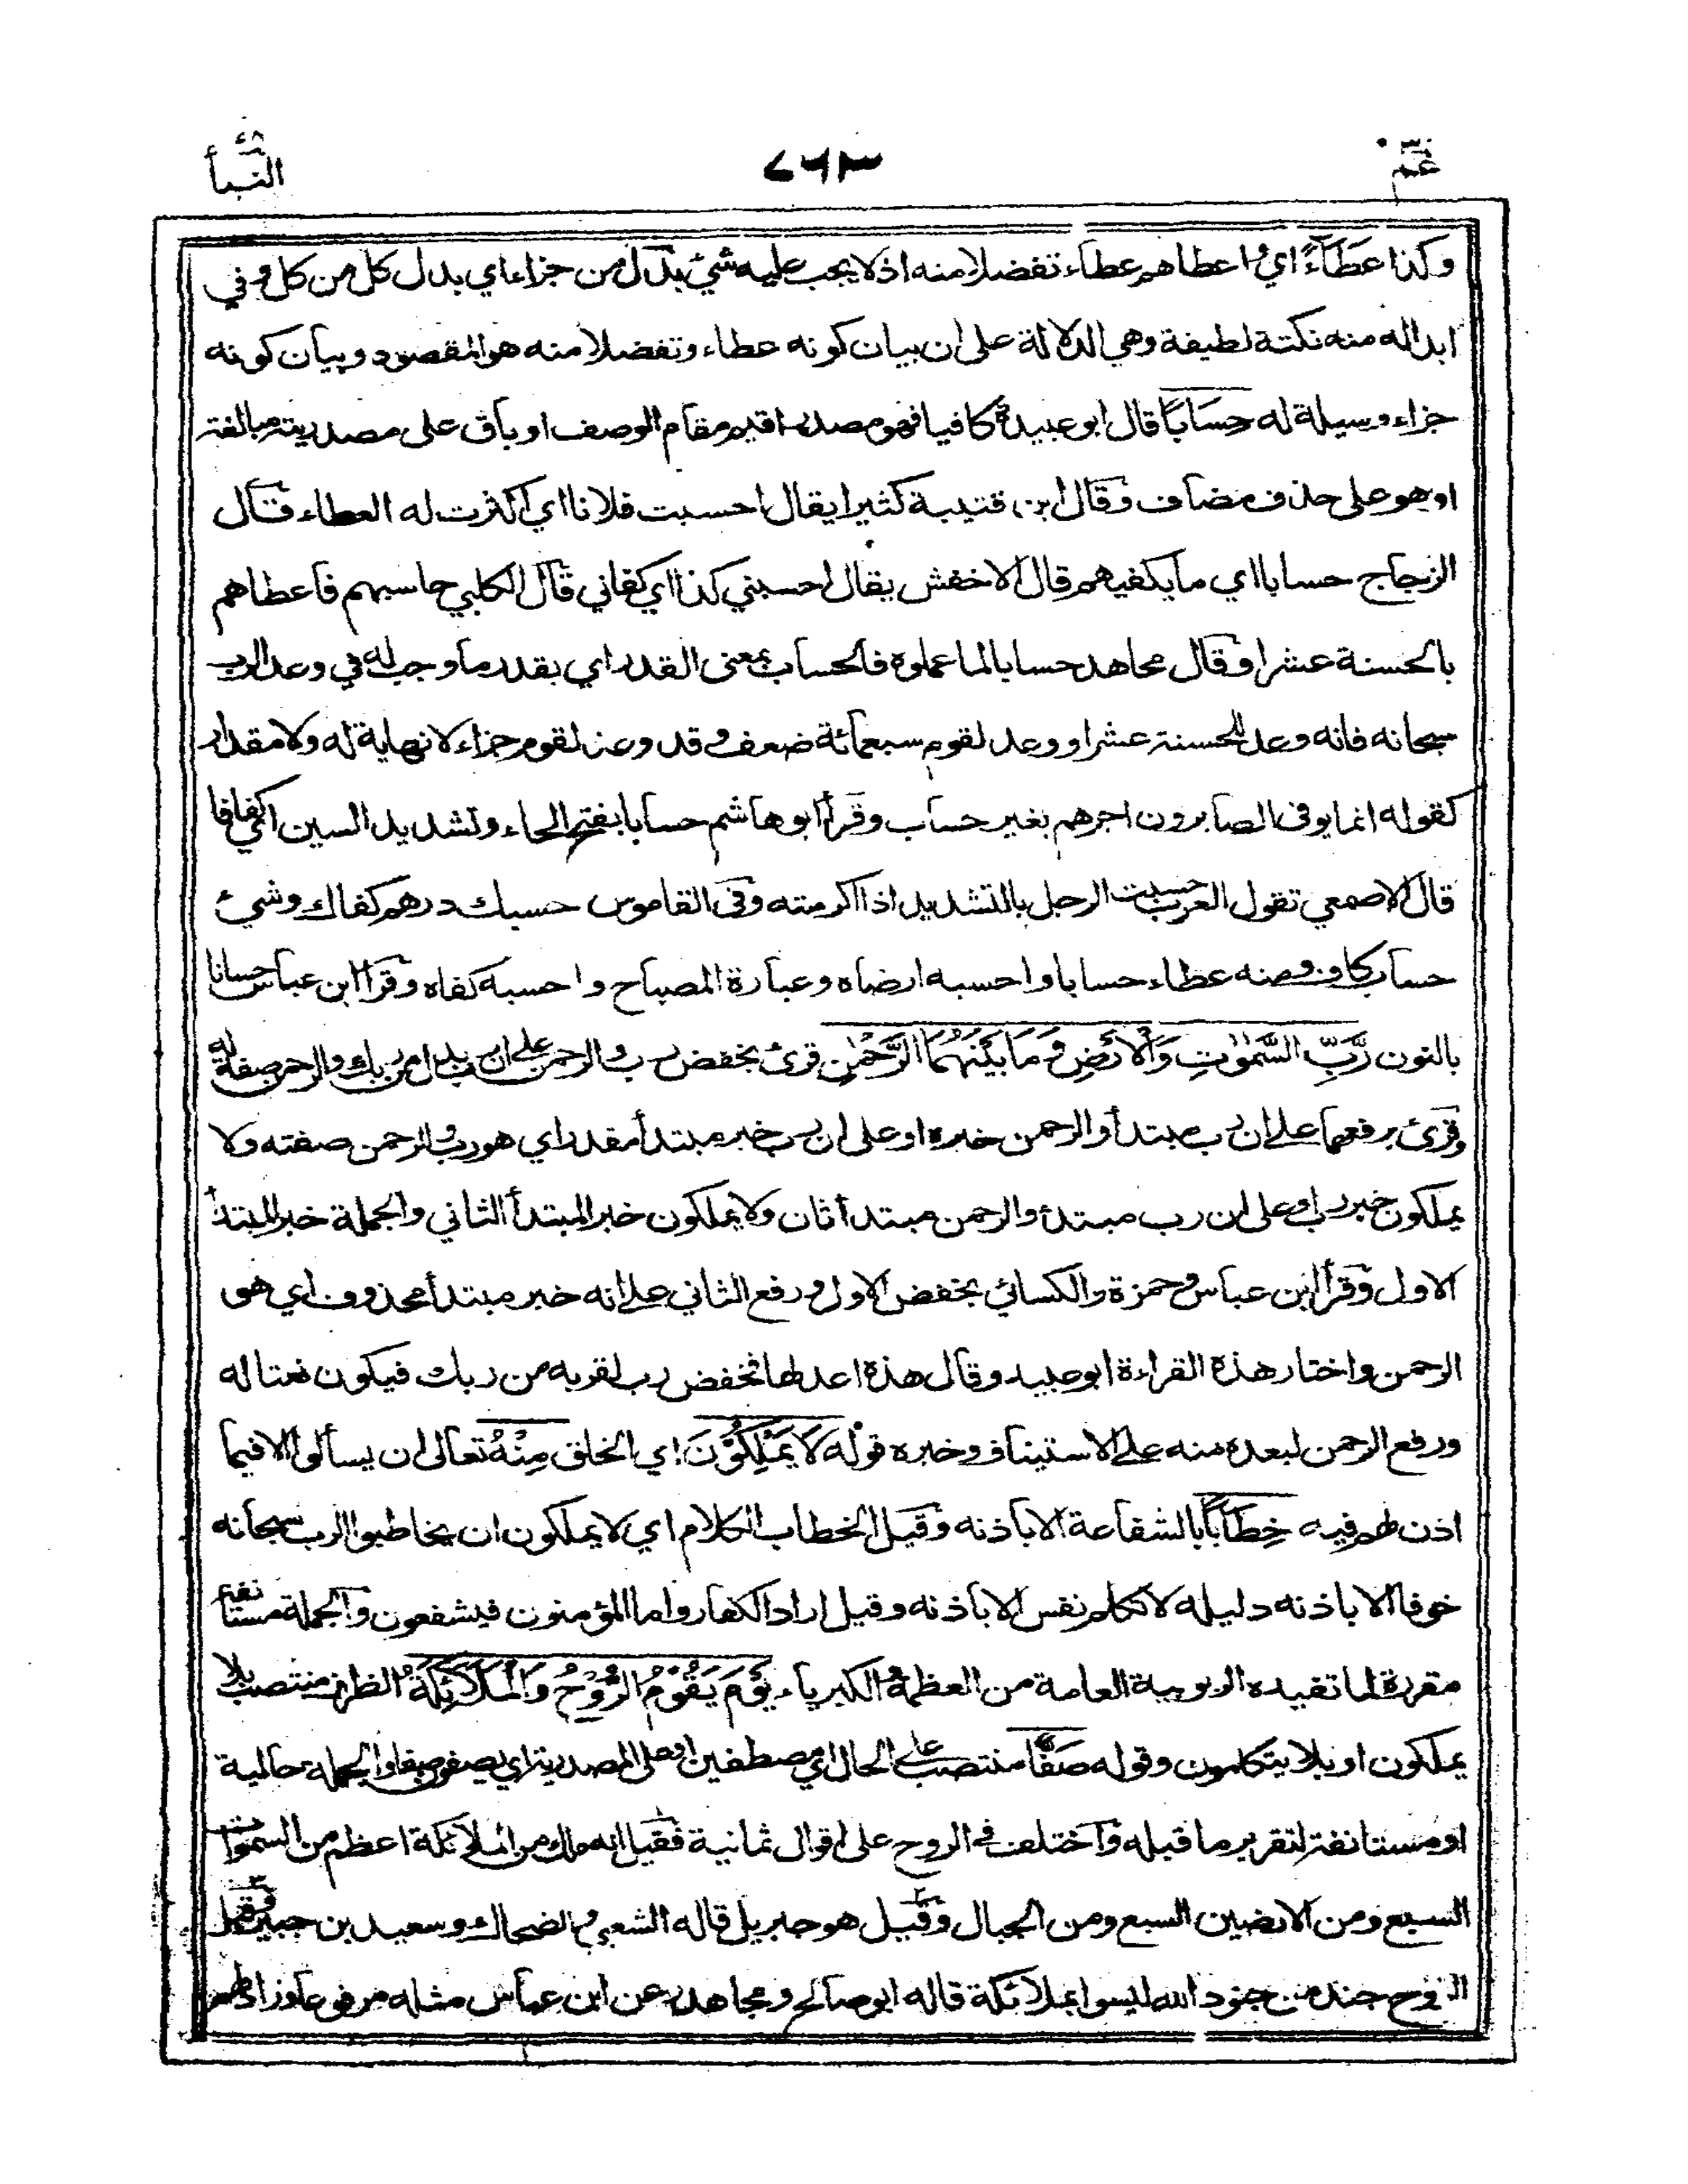 عَمّ
٧٦٣
النبأ
وكذا عَطَاءً اي واعطاهم عطاء تفضلا منه اذ لا يجب عليه شيء بدل من جزاء اي بدل كل من كل وفي
ابداله منه نكتة لطيفة وهي الدلالة على ان بيان كونه عطاء وتفضلا منه هو المقصود وبيان كونه
جزاء وسيلة له حِسَابًا قال ابو عبيدة كافيا فهو مصدر اقيم مقام الوصف او باق على مصدريته مبالغة
او هو على حذف مضاف وقال ابن قتيبة كثيرا يقال احسبت فلانا اي اكثرت له العطاء قال
الزجاج حسابا اي ما يكفيهم قال الاخفش يقال احسبني كذا اي كفاني قال الكلبي حاسبهم فاعطاهم
بالحسنة عشرا وقال مجاهد حسابا لما عملوه فالحساب بمعنى القدر اي بقدر ما وجب له في وعد الرب
سبحانه فانه وعد للحسنة عشرا ووعد لقوم سبعمائة ضعف وقد وعد لقوم جزاء لا نهاية له ولا مقدار
كقوله انما يوفى الصابرون اجرهم بغير حساب وقرأ ابو هاشم حسابا بفتح الحاء وتشديد السين اي كفافا
قال الاصمعي تقول العرب حسبت الرجل بالتشديد اذا اكرمته وفي القاموس حسبك درهم كفاك وشيء
حساب كاف ومنه عطاء حسابا واحسبه ارضاه وعبارة المصباح واحسبه كفاه وقرأ ابن عباس حسانا
بالنون رَّبِّ السَّمٰوٰتِ وَالْاَرْضِ وَمَا بَيْنَهُمَا الرَّحْمٰنِ قرئ بخفض رب والرحمن على ان رب بدل من ربك والرحمن صفة له
وقرئ برفعهما على ان رب مبتدأ والرحمن خبره او على ان رب خبر مبتدأ مقدر اي هو رب والرحمن صفته ولا
يملكون خبر رب او على ان رب مبتدء والرحمن مبتدأ ثان ولا يملكون خبر المبتدأ الثاني والجملة خبر المبتدأ
الاول وقرأ ابن عباس وحمزة والكسائي بخفض الاول ورفع الثاني على انه خبر مبتدأ محذوف اي هو
الرحمن واختار هذه القراءة ابو عبيد وقال هذه اعدلها فخفض رب لقربه من ربك فيكون نعتا له
ورفع الرحمن لبعده منه على الاستيناف وخبره قوله لَا يَمْلِكُوْنَ اي الخلق مِنْهُ تعالى ان يسألوا الا فيما
اذن لهم فيه خِطَابًا بالشفاعة الا باذنه وقيل الخطاب الكلام اي لا يملكون ان يخاطبوا الرب سبحانه
خوفا الا باذنه دليله لا تكلم نفس الا باذنه وقيل اراد الكفار واما المؤمنون فيشفعون والجملة مستأنفة
مقررة لما تفيده الربوبية العامة من العظمة والكبرياء يَوْمَ يَقُوْمُ الرُّوْحُ وَالْمَلَائِكَةُ الظرف منتصب بلا
يملكون او بلا يتكلمون وقوله صَفًّا منتصب على الحال اي مصطفين او على المصدرية اي يصفون صفا والجملة حالية
او مستانفة لتقرير ما قبله واختلف في الروح على اقوال ثمانية فقيل انه ملك من الملائكة اعظم من السموات
السبع ومن الارضين السبع ومن الجبال وقيل هو جبريل قاله الشعبي والضحاك وسعيد بن جبير وقيل
الروح جند من جنود الله ليسوا بملائكة قاله ابو صالح ومجاهد وعن ابن عباس مثله مرفوعا وزاد لهم